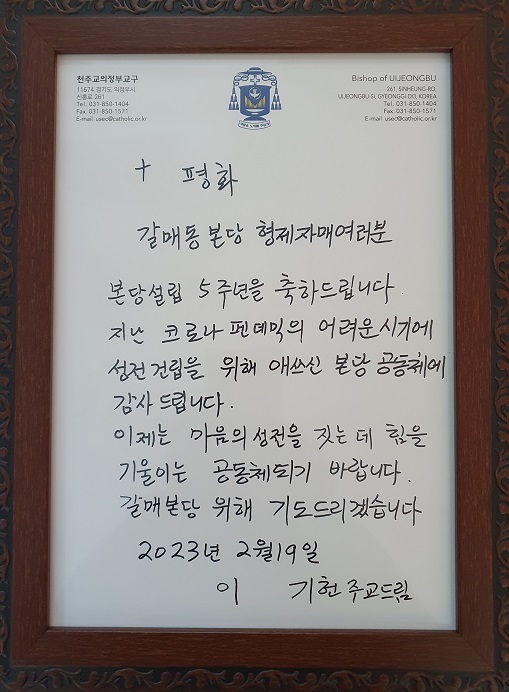 천주교의정부교구
11674 경기도 의정부시
신흥로 261
Tel. 031-850-1404
Fax. 031-850-1571
E-mail usec@catholic.or.kr
Bishop of UIJEONGBU
261, SINHEUNG-RO,
UIJEONGBU-SI, GYEONGGI-DO, KOREA
Tel. 031-850-1404
Fax. 031-850-1571
E-mail usec@catholic.or.kr
✝ 평화
갈매동본당 형제자매여러분
본당설립 5주년을 축하드립니다.
지난 코로나 펜데믹의 어려운시기에
성전건립을 위해 애쓰신 본당공동체에
감사드립니다.
이제는 마음의성전을 짓는데 힘을
기울이는 공동체되기 바랍니다.
갈매본당 위해 기도드리겠습니다
2023년 2월19일
이 기헌 주교드림